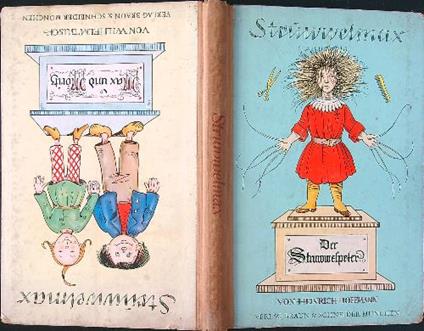 Struwwelmax
Der
Struwwelpeter
VON HEINRICH HOFFMANN
VERLAG BRAUN & SCHNEIDER MÜNCHEN
Struwwelmax
Struwwelmax
Max und Moritz
VERLAG BRAUN & SCHNEIDER MÜNCHEN